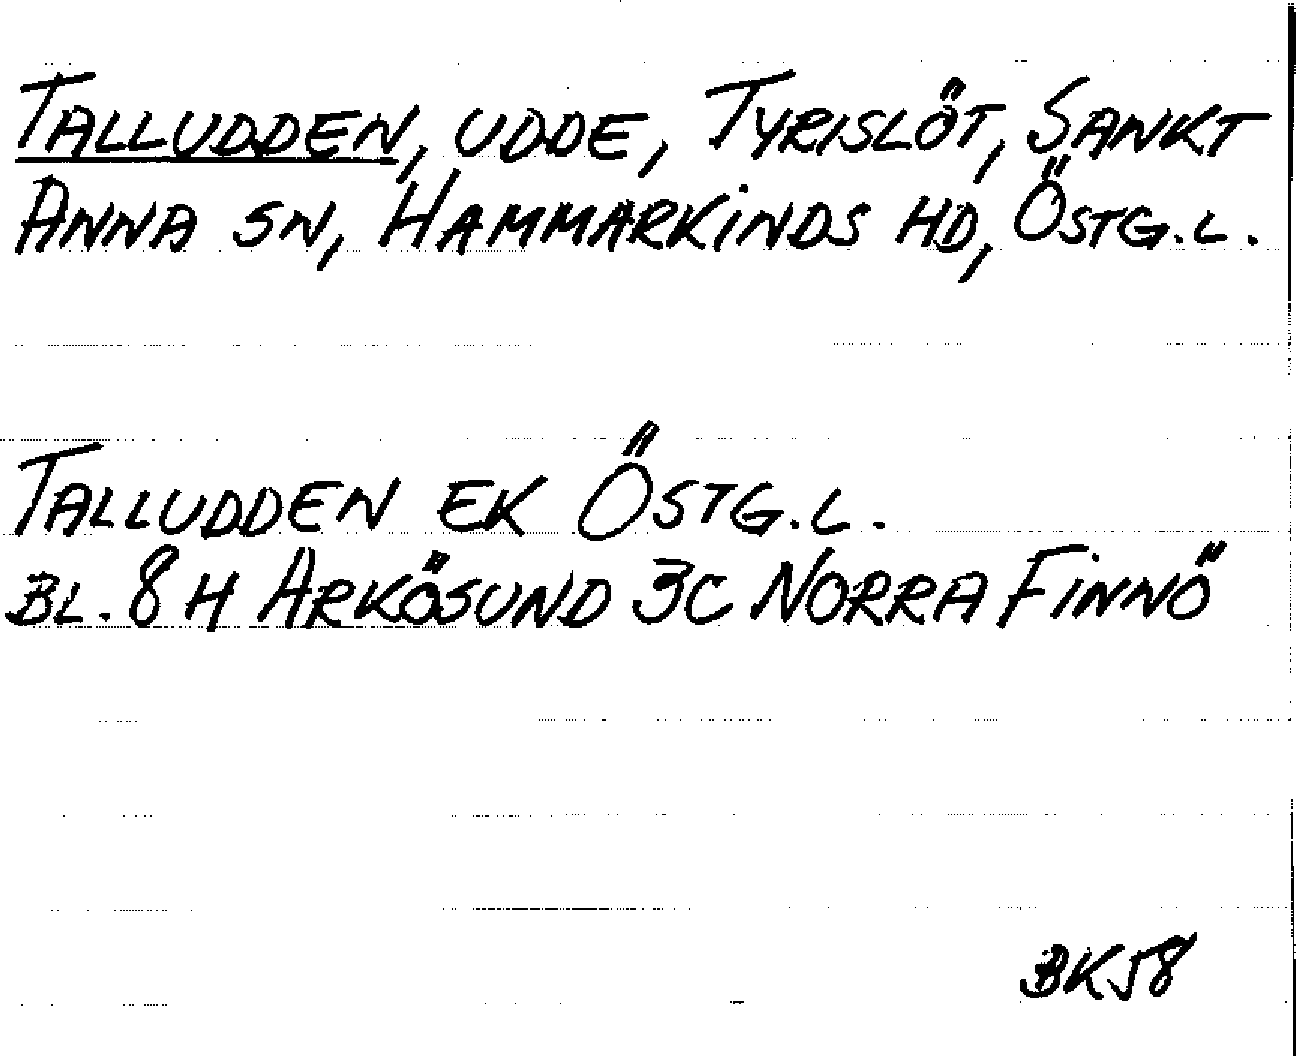 TALLUDDEN, UDDE, TYRISLÖT, SANKT
ANNA SN, HAMMARKINDS HD, ÖSTG.L.
TALLUDDEN EK ÖSTG.L.
BL. 8H ARKÖSUND 3C NORRA FINNÖ
BK58